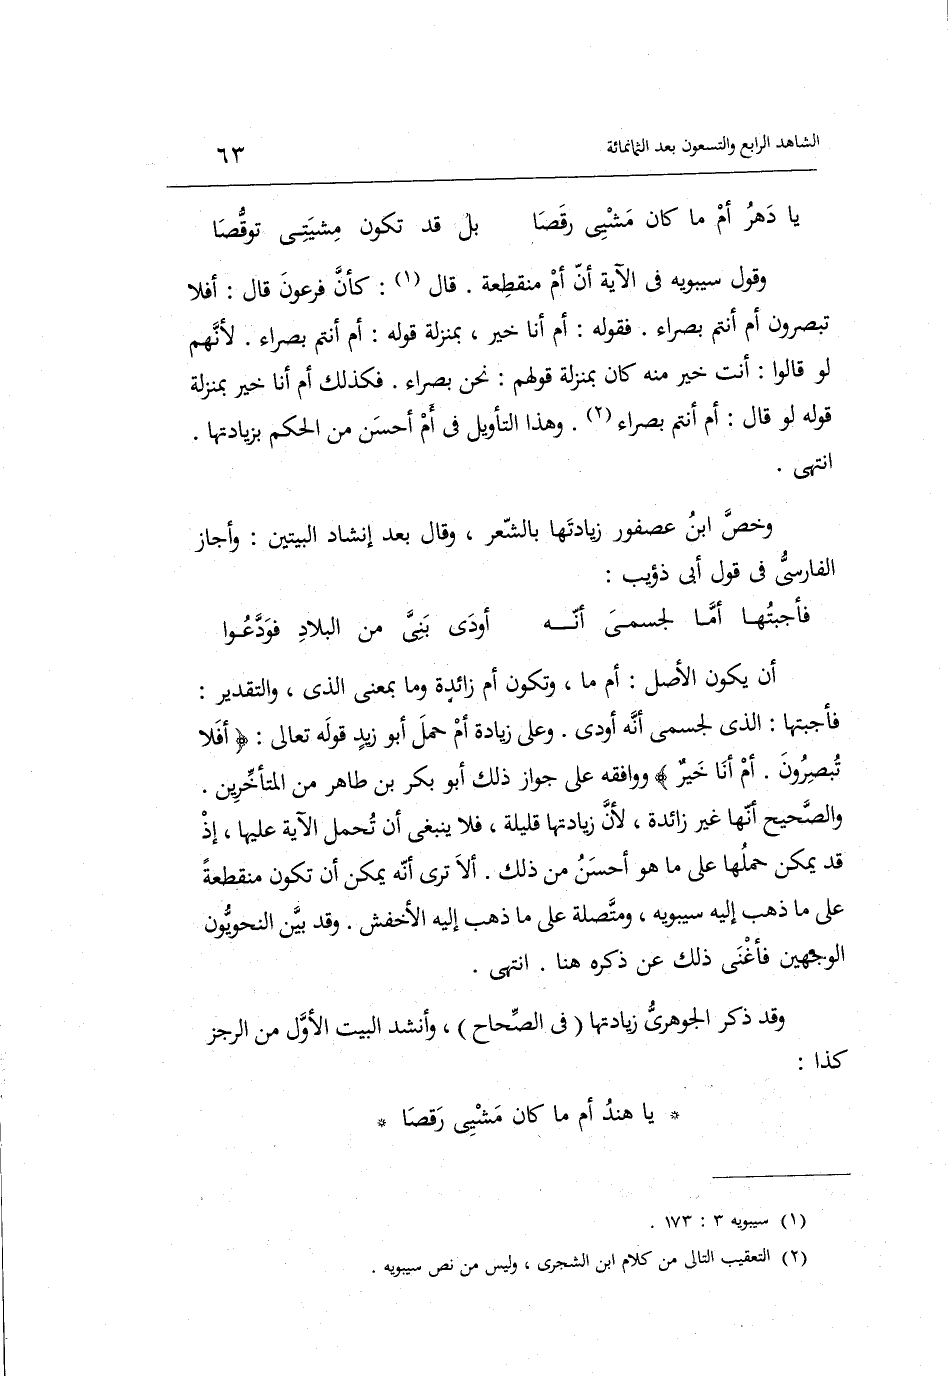 الشاهد الرابع والتسعون بعد الثمانمائة ٦٣
يا دَهرُ أمْ ما كان مَشْيِى رقَصَا بل قد تكون مِشيَتِـى توقُّصَا
وقول سيبويه فى الآية أنّ أمْ منقطِعة . قال (١) : كأنَّ فرعونَ قال : أفلا
تبصرون أم أنتم بصراء . فقوله : أم أنا خير ، بمنزلة قوله : أم أنتم بصراء . لأنَّهم
لو قالوا : أنت خير منه كان بمنزلة قولهم : نحن بصراء . فكذلك أم أنا خير بمنزلة
قوله لو قال : أم أنتم بصراء (٢) . وهذا التأويل فى أَمْ أحسَن من الحكم بزيادتها .
انتهى .
وخصَّ ابنُ عصفور زيادتَها بالشّعر ، وقال بعد إنشاد البيتين : وأجاز
الفارسىُّ فى قول أبى ذؤيب :
فأجبتُهـا أمَّـا لجسمىَ أنّـــه أودَى بَنِىَّ من البلادِ فوَدَّعُـوا
أن يكون الأصل : أم ما ، وتكون أم زائدة وما بمعنى الذى ، والتقدير :
فأجبتها : الذى لجسمى أنَّه أودى . وعلى زيادة أمْ حملَ أبو زيدٍ قولَه تعالى : ﴿ أفَلا
تُبصِرُونَ . أمْ أنَا خَيرٌ ﴾ ووافقه على جواز ذلك أبو بكر بن طاهر من المتأخِّرين .
والصَّحيح أنّها غير زائدة ، لأنَّ زيادتها قليلة ، فلا ينبغى أن تُحمل الآية عليها ، إذْ
قد يمكن حملُها على ما هو أحسَنُ من ذلك . ألاَ ترى أنّه يمكن أن تكون منقطعةً
على ما ذهب إليه سيبويه ، ومتَّصلة على ما ذهب إليه الأخفش . وقد بيَّن النحويُّون
الوجهين فأغْنَى ذلك عن ذكره هنا . انتهى .
وقد ذكر الجوهرىُّ زيادتها ( فى الصِّحاح ) ، وأنشد البيت الأوَّل من الرجز
كذا :
* يا هندُ أم ما كان مَشْيِى رَقصَا *
(١) سيبويه ٣ : ١٧٣ .
(٢) التعقيب التالى من كلام ابن الشجرى ، وليس من نص سيبويه .